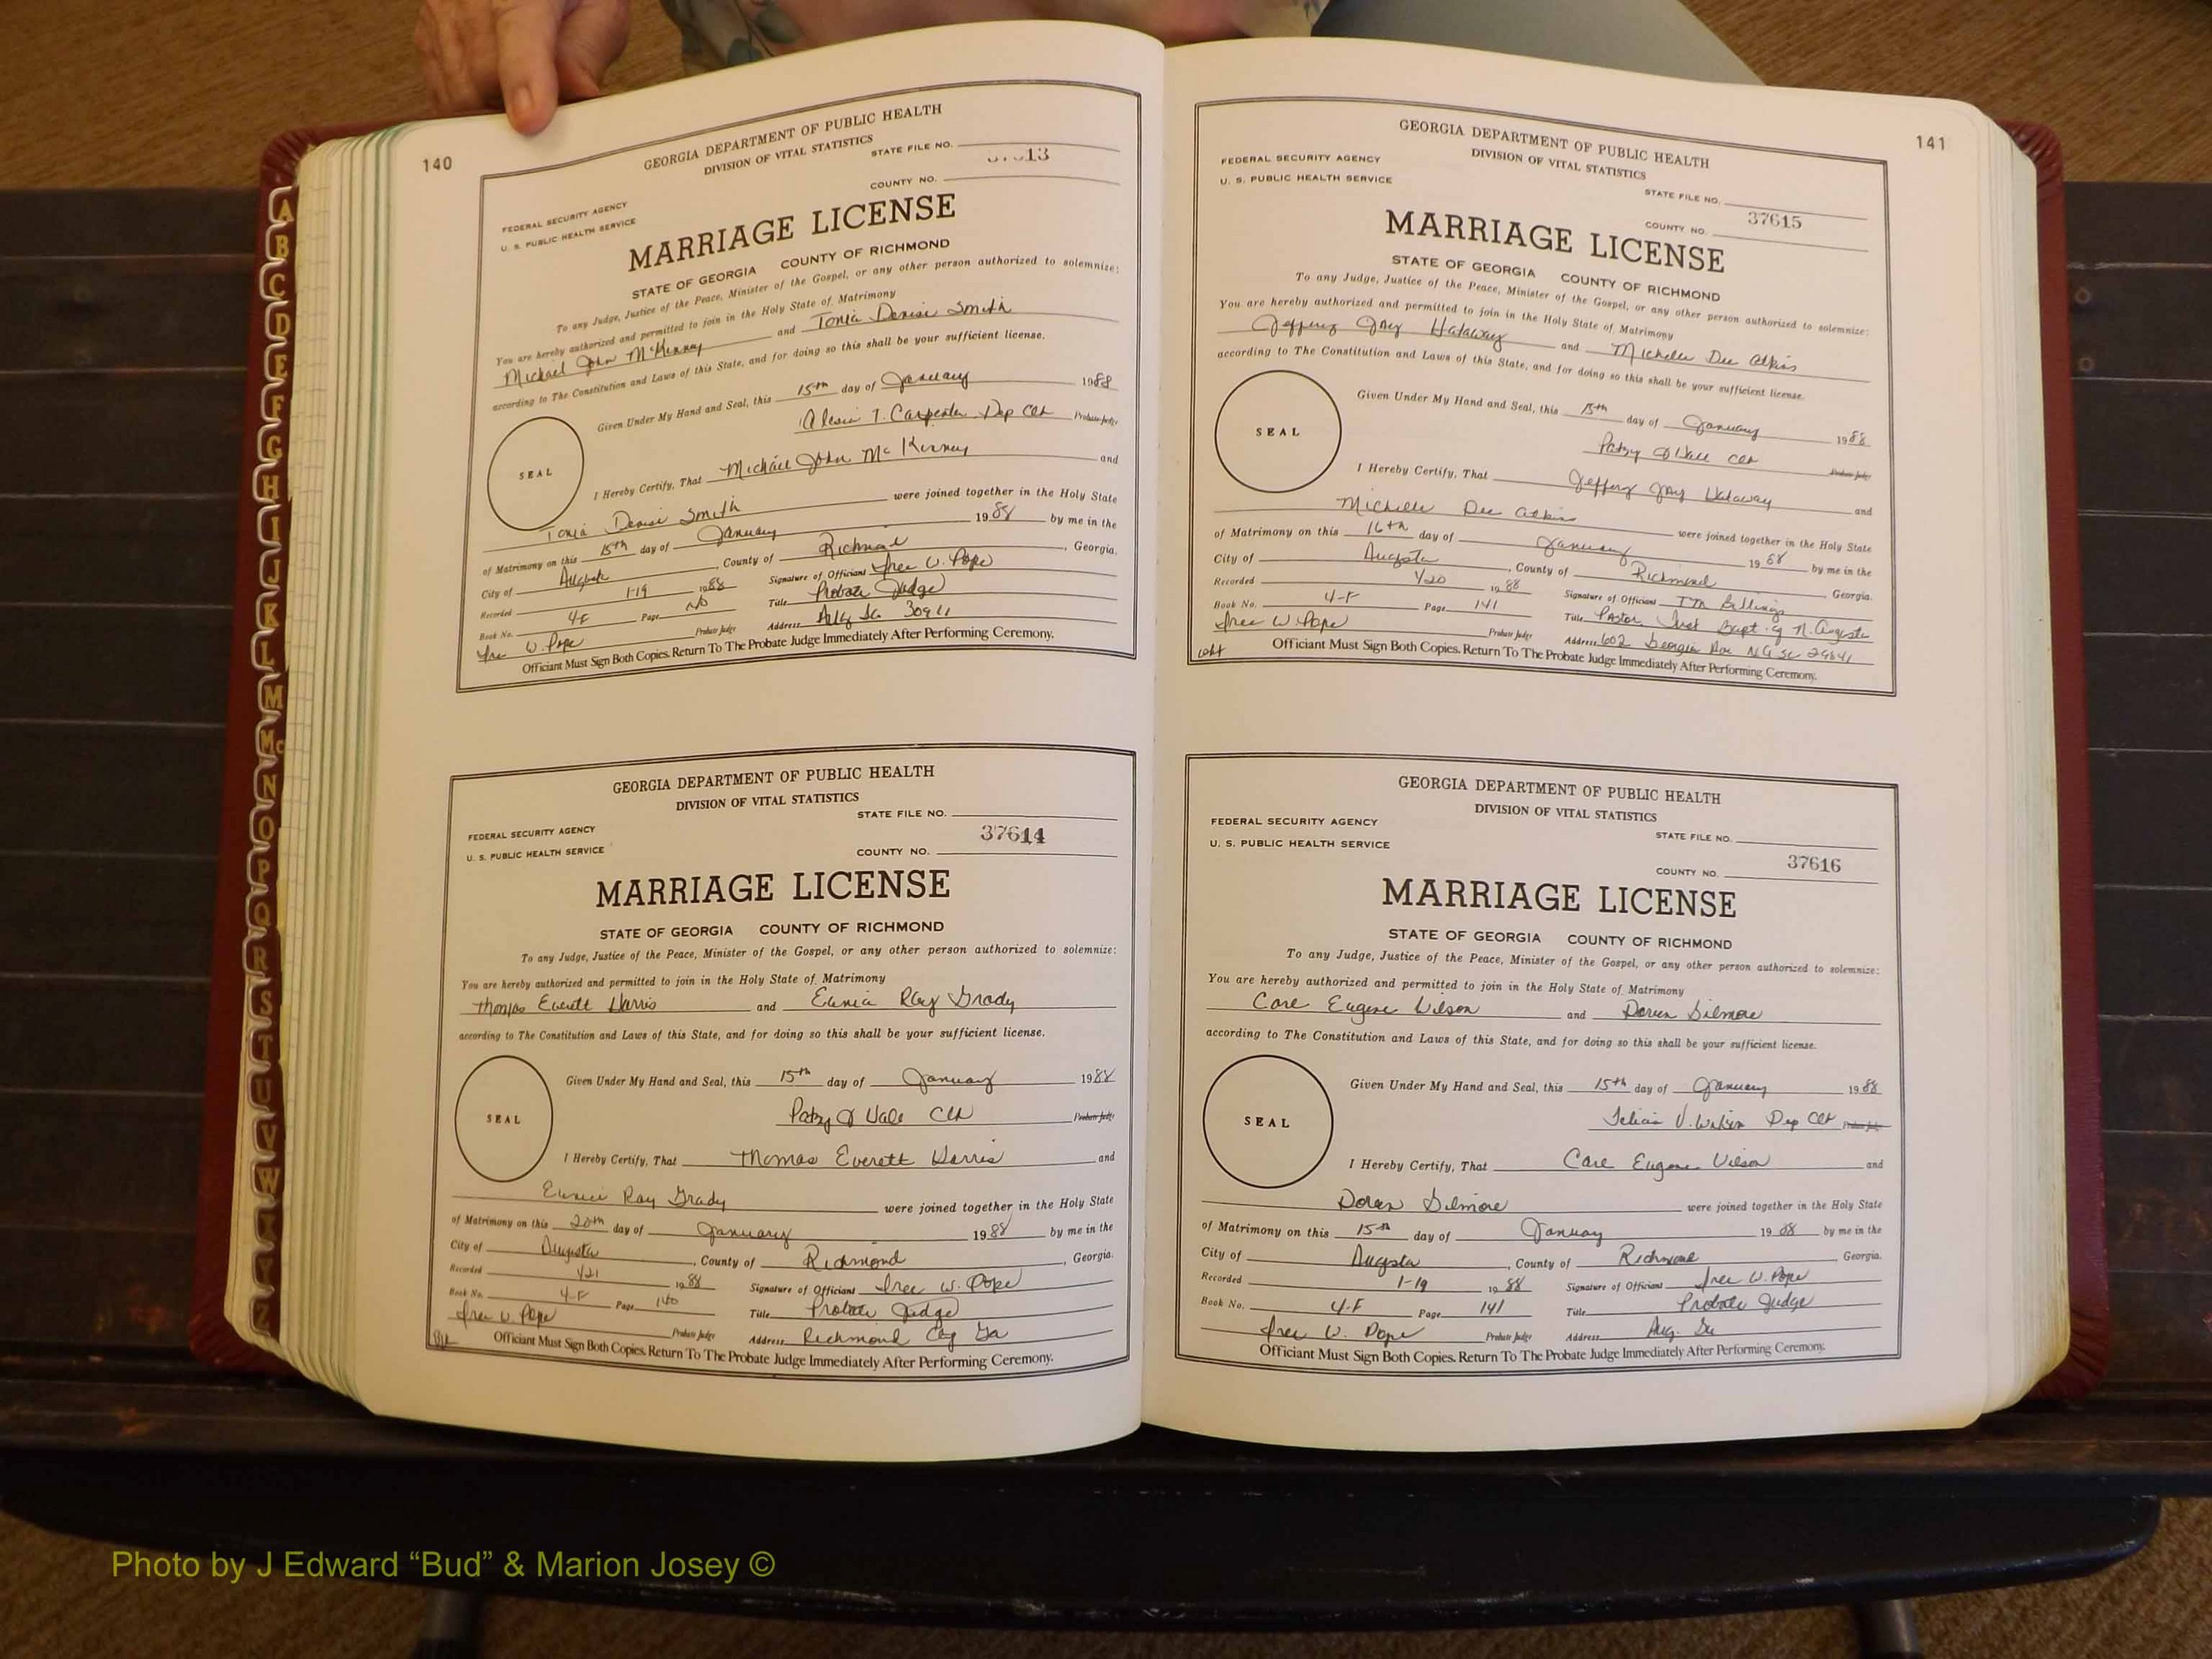 140
GEORGIA DEPARTMENT OF PUBLIC HEALTH
DIVISION OF VITAL STATISTICS
STATE FILE NO.
13
COUNTY NO.
FEDERAL SECURITY AGENCY
U. S. PUBLIC HEALTH SERVICE
MARRIAGE LICENSE
STATE OF GEORGIA COUNTY OF RICHMOND
To any Judge, Justice of the Peace, Minister of the Gospel, or any other person authorized to solemnize:
You are hereby authorized and permitted to join in the Holy State of Matrimony
Michael John McKinney and Tonia Denise Smith
according to The Constitution and Laws of this State, and for doing so this shall be your sufficient license.
Given Under My Hand and Seal, this 15th day of January 1988
T. Carpenter Dep Clk Probate Judge
SEAL
I Hereby Certify, That Michael John McKinney and
Tonia Denise Smith were joined together in the Holy State
of Matrimony on this 15th day of January 1988 by me in the
City of Augusta, County of Richmond, Georgia.
Recorded 1-19 1988 Signature of Officiant W. Pope
Book No. 4-F Page Title Probate Judge
W. Pope Probate Judge Address
Officiant Must Sign Both Copies. Return To The Probate Judge Immediately After Performing Ceremony.
GEORGIA DEPARTMENT OF PUBLIC HEALTH
DIVISION OF VITAL STATISTICS
STATE FILE NO.
37614
FEDERAL SECURITY AGENCY
U. S. PUBLIC HEALTH SERVICE
COUNTY NO.
MARRIAGE LICENSE
STATE OF GEORGIA COUNTY OF RICHMOND
To any Judge, Justice of the Peace, Minister of the Gospel, or any other person authorized to solemnize:
You are hereby authorized and permitted to join in the Holy State of Matrimony
Thomas Everett Harris and Eunice Ray Grady
according to The Constitution and Laws of this State, and for doing so this shall be your sufficient license.
Given Under My Hand and Seal, this 15th day of January 1988
Clk Probate Judge
SEAL
I Hereby Certify, That Thomas Everett Harris and
Eunice Ray Grady were joined together in the Holy State
of Matrimony on this 20th day of January 1988 by me in the
City of Augusta, County of Richmond, Georgia.
Recorded 1/21 1988 Signature of Officiant W. Pope
Book No. 4-F Page 140 Title Probate Judge
W. Pope Probate Judge Address Richmond Cty Ga
Officiant Must Sign Both Copies. Return To The Probate Judge Immediately After Performing Ceremony.
141
GEORGIA DEPARTMENT OF PUBLIC HEALTH
DIVISION OF VITAL STATISTICS
FEDERAL SECURITY AGENCY
U. S. PUBLIC HEALTH SERVICE
STATE FILE NO.
37615
COUNTY NO.
MARRIAGE LICENSE
STATE OF GEORGIA COUNTY OF RICHMOND
To any Judge, Justice of the Peace, Minister of the Gospel, or any other person authorized to solemnize:
You are hereby authorized and permitted to join in the Holy State of Matrimony
Jeffery Jay Hataway and Michelle Dee Atkins
according to The Constitution and Laws of this State, and for doing so this shall be your sufficient license.
Given Under My Hand and Seal, this 15th day of January 1988
Clk Probate Judge
SEAL
I Hereby Certify, That Jeffery Jay Hataway and
Michelle Dee Atkins were joined together in the Holy State
of Matrimony on this 16th day of January 1988 by me in the
City of Augusta, County of Richmond Georgia.
Recorded 1/20 1988 Signature of Officiant Billings
Book No. 4-F Page 141 Title Pastor First Bapt. of N. Augusta
W. Pope Probate Judge Address 602 Georgia Ave N.A. SC 29841
Officiant Must Sign Both Copies. Return To The Probate Judge Immediately After Performing Ceremony.
GEORGIA DEPARTMENT OF PUBLIC HEALTH
DIVISION OF VITAL STATISTICS
FEDERAL SECURITY AGENCY
U. S. PUBLIC HEALTH SERVICE
STATE FILE NO.
37616
COUNTY NO.
MARRIAGE LICENSE
STATE OF GEORGIA COUNTY OF RICHMOND
To any Judge, Justice of the Peace, Minister of the Gospel, or any other person authorized to solemnize:
You are hereby authorized and permitted to join in the Holy State of Matrimony
Carl Eugene Wilson and Doren Gilmore
according to The Constitution and Laws of this State, and for doing so this shall be your sufficient license.
Given Under My Hand and Seal, this 15th day of January 1988
V. Dep Clk Probate Judge
SEAL
I Hereby Certify, That Carl Eugene Wilson and
Doren Gilmore were joined together in the Holy State
of Matrimony on this 15th day of January 1988 by me in the
City of Augusta, County of Richmond Georgia.
Recorded 1-19 1988 Signature of Officiant W. Pope
Book No. 4-F Page 141 Title Probate Judge
W. Pope Probate Judge Address Aug. Ga
Officiant Must Sign Both Copies. Return To The Probate Judge Immediately After Performing Ceremony.
A
B
C
D
E
F
G
H
I
J
K
L
M
Mc
N
O
P
Q
R
S
T
U
V
W
X
Y
Z
Photo by J Edward “Bud” & Marion Josey ©